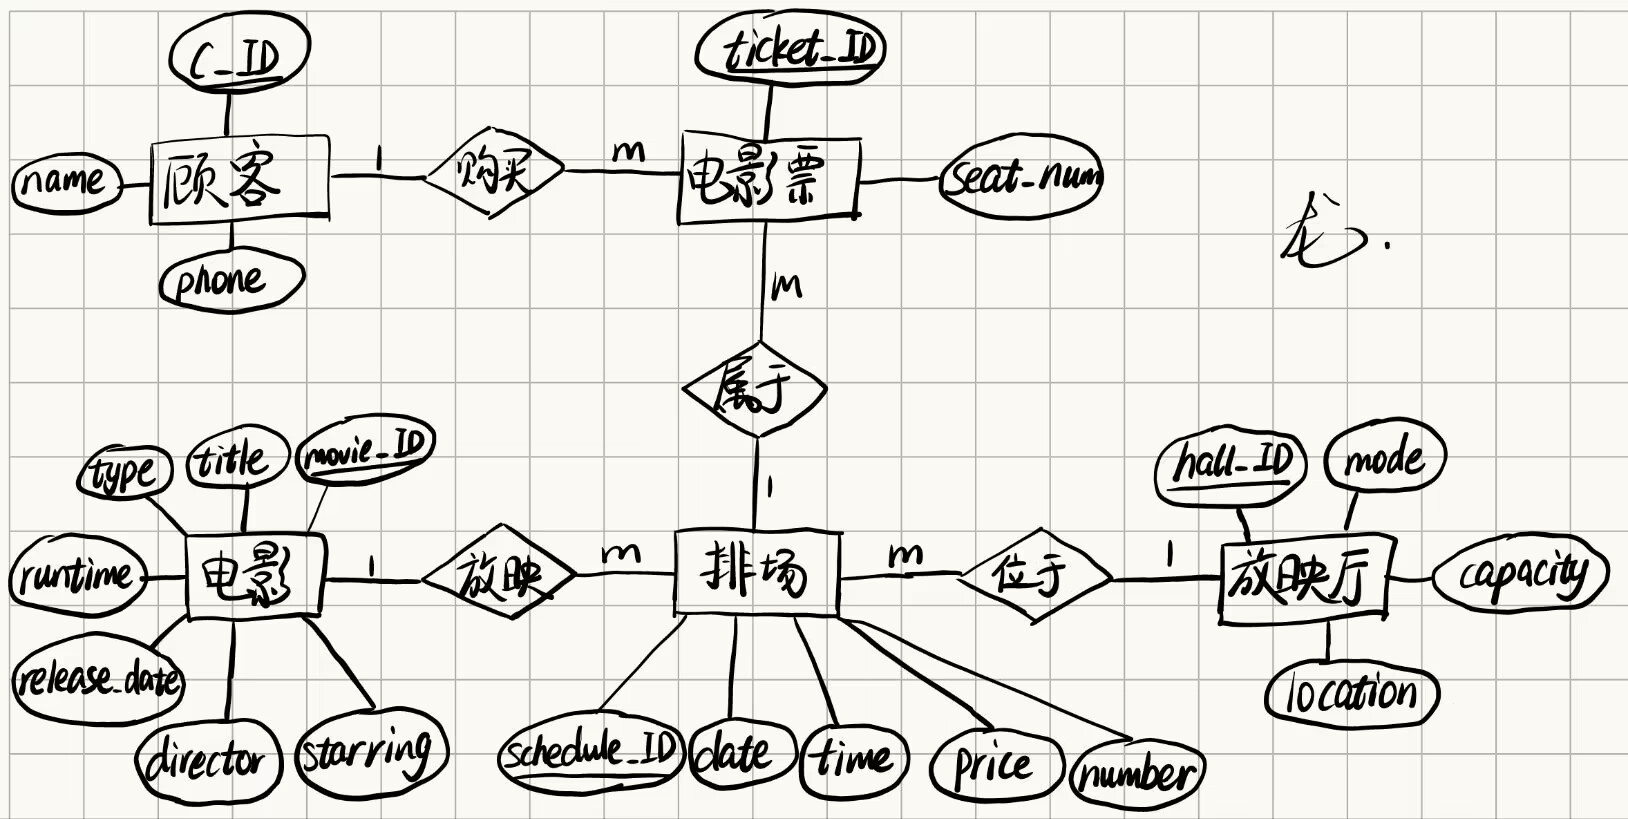 C_ID
ticket_ID
name
顾客
1
购买
m
电影票
seat-num
phone
m
属于
1
type
title
movie_ID
hall_ID
mode
runtime
电影
1
放映
m
排场
m
位于
1
放映厅
capacity
release_date
location
director
starring
schedule_ID
date
time
price
number